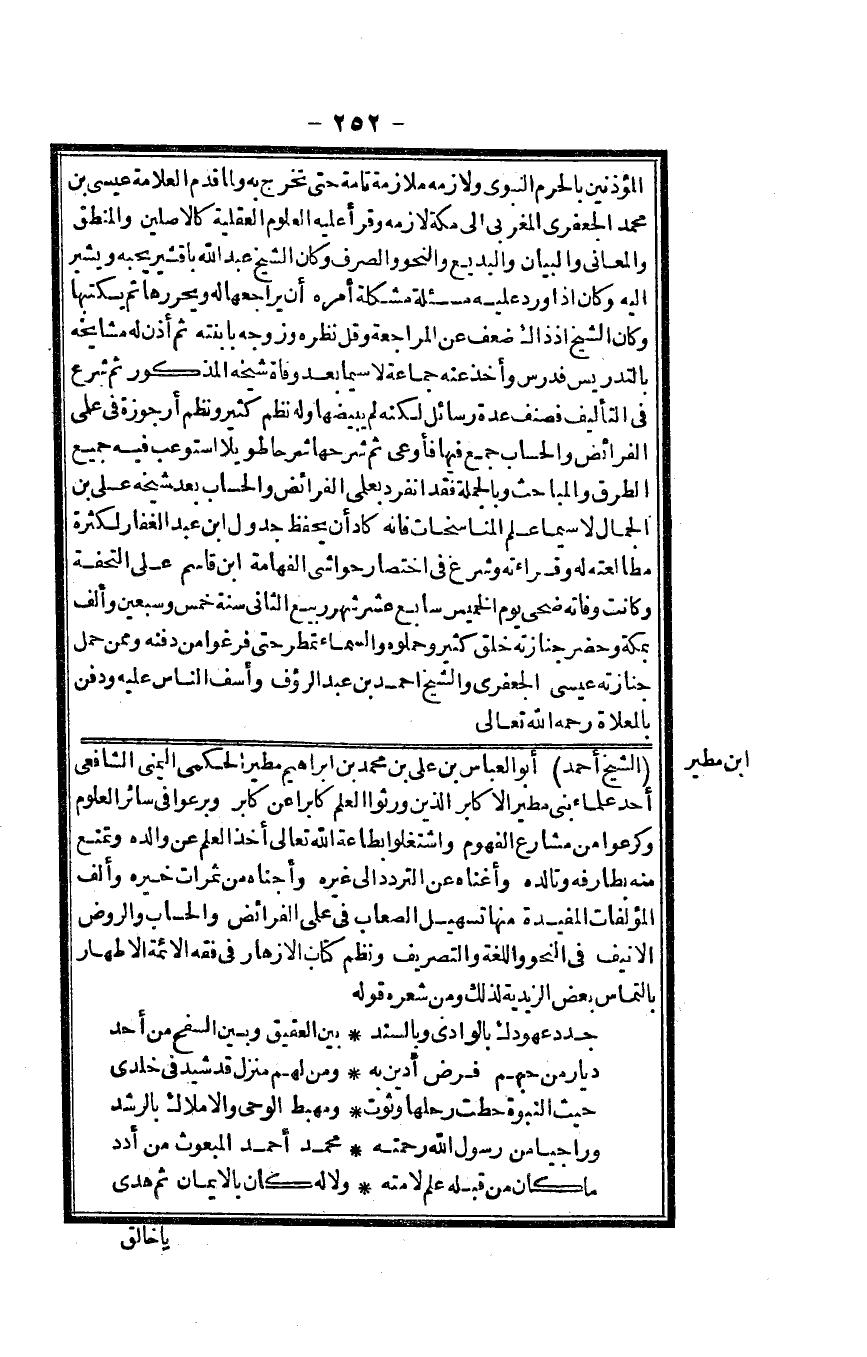 - ٢٥٢ -
المؤذنين بالحرم النبوى ولازمه ملازمة تامة حتى تخرج به ولما قدم العلامة عيسى بن
محمد الجعفرى المغربى الى مكة لازمه وقرأ عليه العلوم العقلية كالاصلين والمنطق
والمعانى والبيان والبديع والنحو والصرف وكان الشيخ عبد الله باقشير يحبه ويشير
اليه وكان اذا ورد عليه مسئلة مشكلة أمره أن يراجعها له ويحررها ثم يكتبها
وكان الشيخ اذ ذاك ضعف عن المراجعة وقل نظره وزوجه بابنته ثم أذن له مشايخه
بالتدريس فدرس وأخذ عنه جماعة لاسيما بعد وفاة شيخه المذكور ثم شرع
فى التأليف فصنف عدة رسائل لكنه لم يبيضها وله نظم كثير ونظم أرجوزة فى على
الفرائض والحساب جمع فيها فأوعى ثم شرحها شرحا طويلا استوعب فيه جميع
الطرق والمباحث وبالجملة فقد انفرد بعلمى الفرائض والحساب بعد شيخه على بن
الجمال لاسيما علم المناسخات فانه كاد أن يحفظ جدول ابن عبد الغفار لكثرة
مطالعته له وقراءته وشرع فى اختصار حواشى الفهامة ابن قاسم على التحفة
وكانت وفاته ضحى يوم الخميس سابع عشر شهر ربيع الثانى سنة خمس وسبعين وألف
بمكة وحضر جنازته خلق كثير وحملوه والسماء تمطر حتى فرغوا من دفنه وممن حمل
جنازته عيسى الجعفرى والشيخ احمد بن عبد الرؤف وأسف الناس عليه ودفن
بالمعلاة رحمه الله تعالى
ابن مطير
(الشيخ أحمد) أبو العباس بن على بن محمد بن ابراهيم مطير الحكمى اليمنى الشافعى
أحد علماء بنى مطير الاكابر الذين ورثوا العلم كابرا عن كابر وبرعوا فى سائر العلوم
وكرعوا من مشارع الفهوم واشتغلوا بطاعة الله تعالى أخذ العلم عن والده وتمتع
منه بطارفه وتالده وأغناه عن التردد الى غيره وأجناه من ثمرات خيره وألف
المؤلفات المفيدة منها تسهيل الصعاب فى على الفرائض والحساب والروض
الانيف فى النحو واللغة والتصريف ونظم كتاب الازهار فى فقه الائمة الاطهار
بالتماس بعض الزيدية لذلك ومن شعره قوله
جدد عهودك بالوادى وبالسند * بين العقيق وبين السفح من أحد
ديار من حبهم فرض أدين به * ومن لهم منزل قد شيد فى خلدى
حيث النبوة حطت رحلها وثوت * ومهبط الوحى والاملاك بالرشد
وراجيا من رسول الله رحمته * محمد أحمد المبعوث من أدد
ما كان من قبله علم لامته * ولا له كان بالايمان ثم هدى
ياخالق